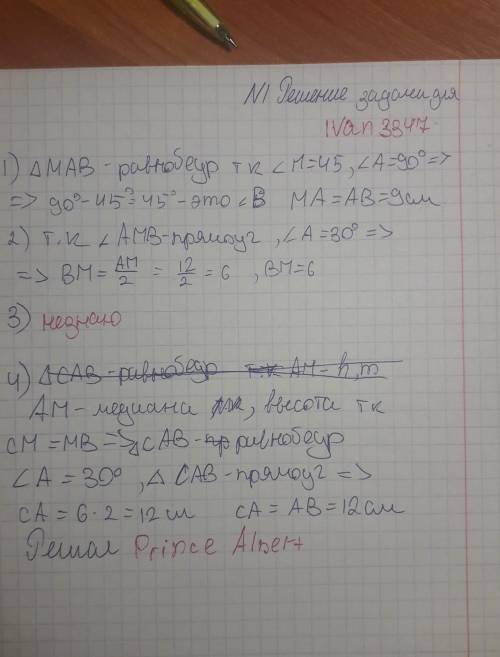 N1 Решение задачи для
IVan3847.
1) ΔMAB - равнобедр т к ∠M=45, ∠A=90° =>
=> 90° - 45° = 45° - это ∠B MA = AB = 9см
2) т.к ∠AMB - прямоуг, ∠A = 30° =>
=> BM = AM/2 = 12/2 = 6 , BM = 6
3) незнаю
4) ΔCAB - равнобедр т.к AM - h, m
AM - медиана , высота тк
CM = MB => ΔCAB - равнобедр
∠A = 30° , Δ CAB - прямоуг =>
CA = 6 · 2 = 12см CA = AB = 12см
Решал Prince Albert